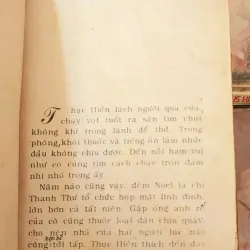 Thục Hiền lách người qua cửa,
chạy vọt tuốt ra sân tìm chút
không khí trong lành để thở. Trong
phòng, khói thuốc và tiếng ồn làm nhức
đầu không chịu được. Đến nỗi ham vui
như cô cũng tìm cách chạy trốn đám
nhí nhố trong ấy.
Năm nào cũng vậy, đêm Noel là chị
Thanh Thư tổ chức họp mặt linh đình,
lớn hơn cả tất niên. Gặp ông anh rể
của cô cũng thuộc loại dân chịu quậy,
cho nên nhà của hai người lúc nào
cũng tới tấp. Thục Hiền thích đến đây